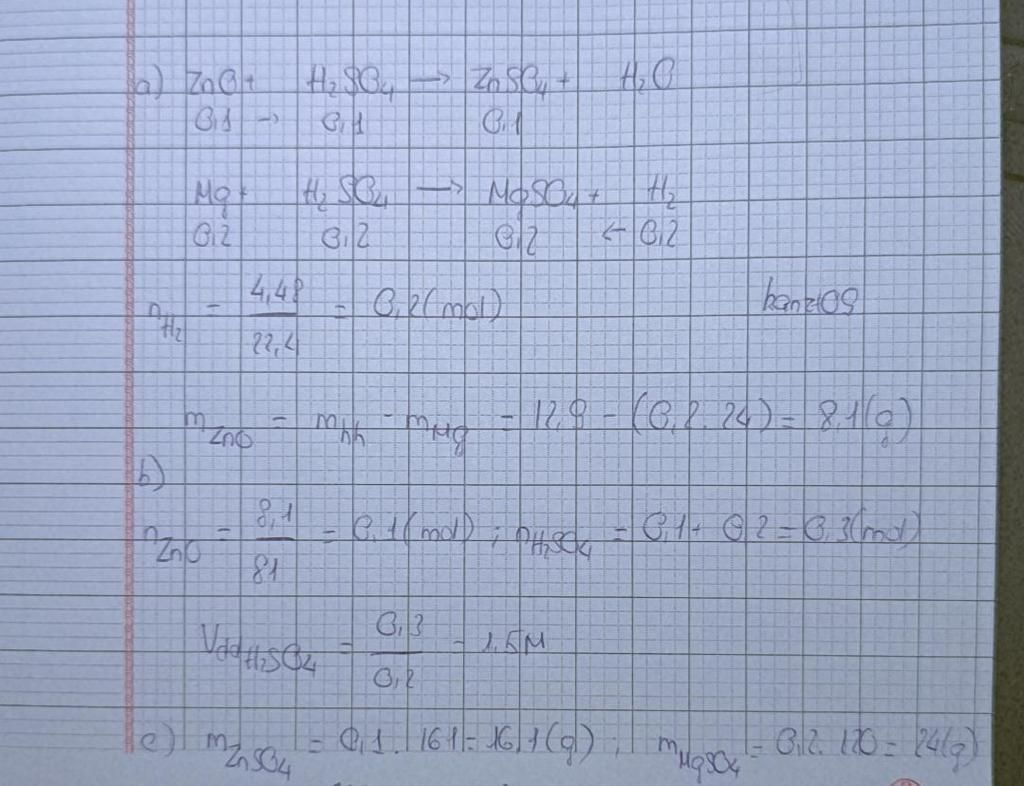 a) ZnO + H₂SO₄ → ZnSO₄ + H₂O
0,1 → 0,1 0,1
Mg + H₂SO₄ → MgSO₄ + H₂
0,2 0,2 0,2 ← 0,2
n_H₂ = 4,48/22,4 = 0,2 (mol)
m_ZnO = m_hh - m_Mg = 12,9 - (0,2.24) = 8,1(g)
b)
n_ZnO = 8,1/81 = 0,1 (mol) ; n_H₂SO₄ = 0,1 + 0,2 = 0,3(mol)
Vdd_H₂SO₄ = 0,3/0,2 = 1,5M
c) m_ZnSO₄ = 0,1 . 161 = 16,1(g) ; m_MgSO₄ = 0,2. 120 = 24(g)